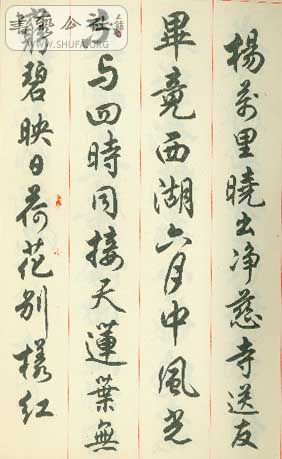 楊萬里曉出净慈寺送友
畢竟西湖六月中風光
不与四時同接天蓮葉無
窮碧映日荷花别樣红
書藝公社
WWW.SHUFA.ORG